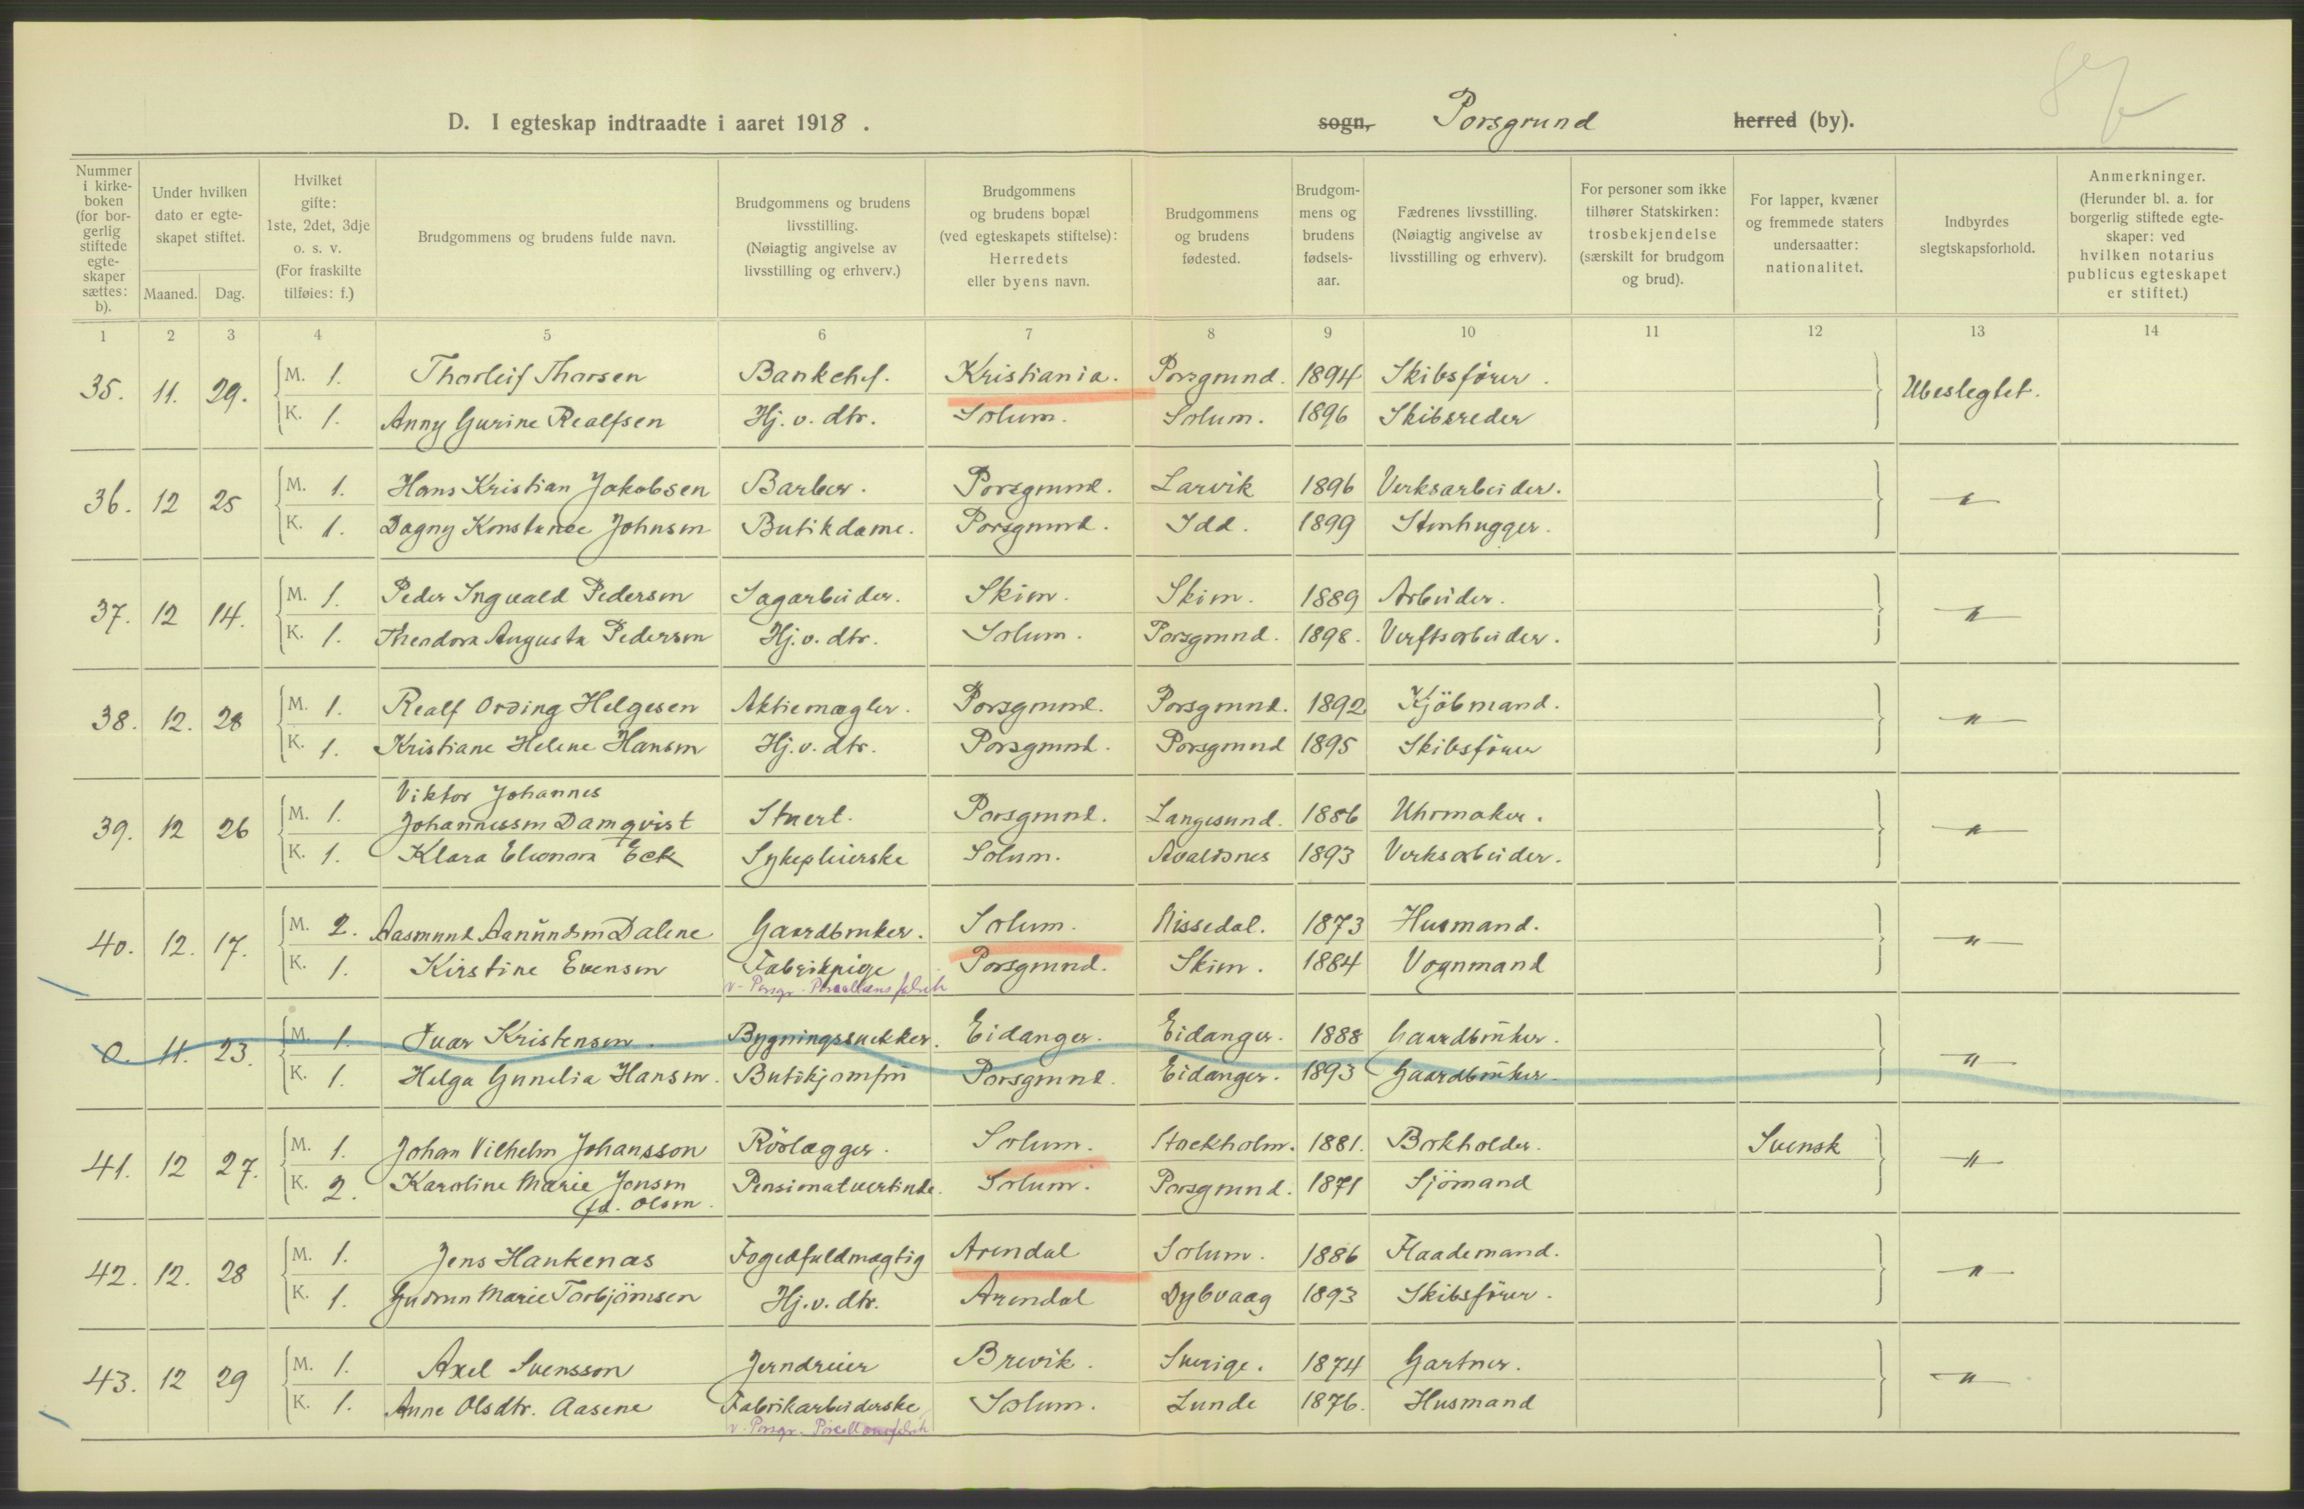 D. I egteskap indtraadte i aaret 1918.
sogn, Porsgrund herred (by).
Nummer i kirkeboken (for borgerlig stiftede egteskaper sættes: b).
Under hvilken dato er egteskapet stiftet.
Maaned. Dag.
Hvilket gifte: 1ste, 2det, 3dje o. s. v. (For fraskilte tilføies: f.)
Brudgommens og brudens fulde navn.
Brudgommens og brudens livsstilling. (Nøiagtig angivelse av livsstilling og erhverv.)
Brudgommens og brudens bopæl (ved egteskapets stiftelse): Herredets eller byens navn.
Brudgommens og brudens fødested.
Brudgommens og brudens fødselsaar.
Fædrenes livsstilling. (Nøiagtig angivelse av livsstilling og erhverv).
For personer som ikke tilhører Statskirken: trosbekjendelse (særskilt for brudgom og brud).
For lapper, kvæner og fremmede staters undersaatter: nationalitet.
Indbyrdes slegtskapsforhold.
Anmerkninger. (Herunder bl. a. for borgerlig stiftede egteskaper: ved hvilken notarius publicus egteskapet er stiftet.)
1 2 3 4 5 6 7 8 9 10 11 12 13 14
35. 11. 29. M. 1. Thorleif Thorsen Bankchef. Kristiania. Porsgrund. 1894 Skibsfører. Ubeslegtet.
K. 1. Anny Gurine Realfsen Hj. v. dtr. Solum. Solum. 1896 Skibsreder
36. 12 25 M. 1. Hans Kristian Jakobsen Barber. Porsgrund. Larvik 1896 Verksarbeider. "
K. 1. Dagny Konstance Johnsen Butikdame. Porsgrund. Idd. 1899 Stenhugger.
37. 12 14. M. 1. Peder Ingvald Pedersen Sagarbeider. Skien. Skien. 1889 Arbeider. "
K. 1. Theodora Augusta Pedersen Hj. v. dtr. Solum. Porsgrund. 1898. Verftsarbeider.
38. 12. 28 M. 1. Realf Ording Helgesen Aktiemægler. Porsgrund. Porsgrund. 1892 Kjöbmand. "
K. 1. Kristiane Helene Hansen Hj. v. dtr. Porsgrund. Porsgrund 1895 Skibsfører
Viktor Johannes
39. 12 26 M. 1. Johannessen Damqvist Stuert. Porsgrund. Langesund. 1886 Uhrmaker. "
K. 1. Klara Eleonora Eck Sykepleierske Solum. Avaldsnes 1893 Verksarbeider.
40. 12. 17. M. 2. Aasmund Aanundsen Dalene Gaardbruker. Solum. Nissedal. 1873 Husmand. "
K. 1. Kirstine Evensen Fabrikpige Porsgrund. Skien. 1884 Vognmand
v. Porsgr. Porcellænsfabrik
0. 11. 23. M. 1. Ivar Kristensen. Bygningssnekker. Eidanger. Eidanger. 1888 Gaardbruker. "
K. 1. Helga Gunelia Hansen. Butikjomfru Porsgrund. Eidanger. 1893 Gaardbruker.
41. 12 27. M. 1. Johan Vilhelm Johansson Rörlægger. Solum. Stockholm. 1881. Bokholder. Svensk "
K. 2. Karoline Marie Jensen Pensionatvertinde. Solum. Porsgrund. 1871 Sjömand
fd. Olsen.
42. 12. 28 M. 1. Jens Hankenæs Fogedfuldmægtig Arendal Solum. 1886 Flaademand. "
K. 1. Gudrun Marie Torbjörnsen Hj. v. dtr. Arendal Dybvaag 1893 Skibsfører.
43. 12 29 M. 1. Axel Svensson Jerndreier Brevik. Sverige. 1874 Gartner. "
K. 1. Anne Olsdtr. Aasene Fabrikarbeiderske Solum. Lunde 1876. Husmand
v. Porsgr. Porcellænsfabrik